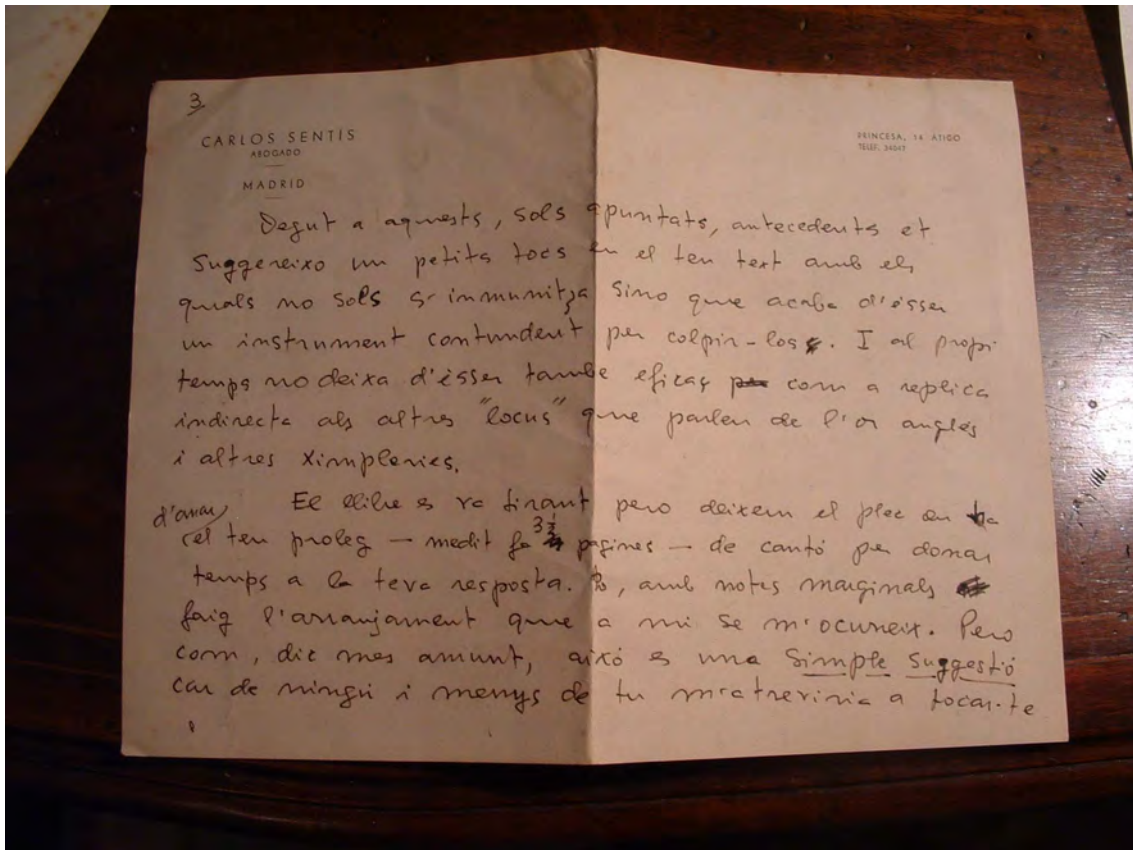 3
CARLOS SENTIS
ABOGADO
MADRID
PRINCESA, 14 ATICO
TELEF. 34047
Degut a aquests, sols apuntats, antecedents et
suggereixo un petits tocs en el teu text amb els
quals no sols s'inmunitza sino que acaba d'ésser
un instrument contundent per colpir-los. I al propi
temps no deixa d'ésser tambe eficaç com a replica
indirecta als altres "locus" que parlen de l'or anglés
i altres ximpleries.
El llibre es va tirant pero deixem el plec on
d'anar el teu proleg — medit fa 3 1/2 pagines — de cantó per donar
temps a la teva resposta. amb notes marginals
faig l'arranjament que a mi se m'ocurreix. Pero
com, dic mes amunt, aixó es una simple suggestió
car de ningú i menys de tu m'atreviria a tocar-te